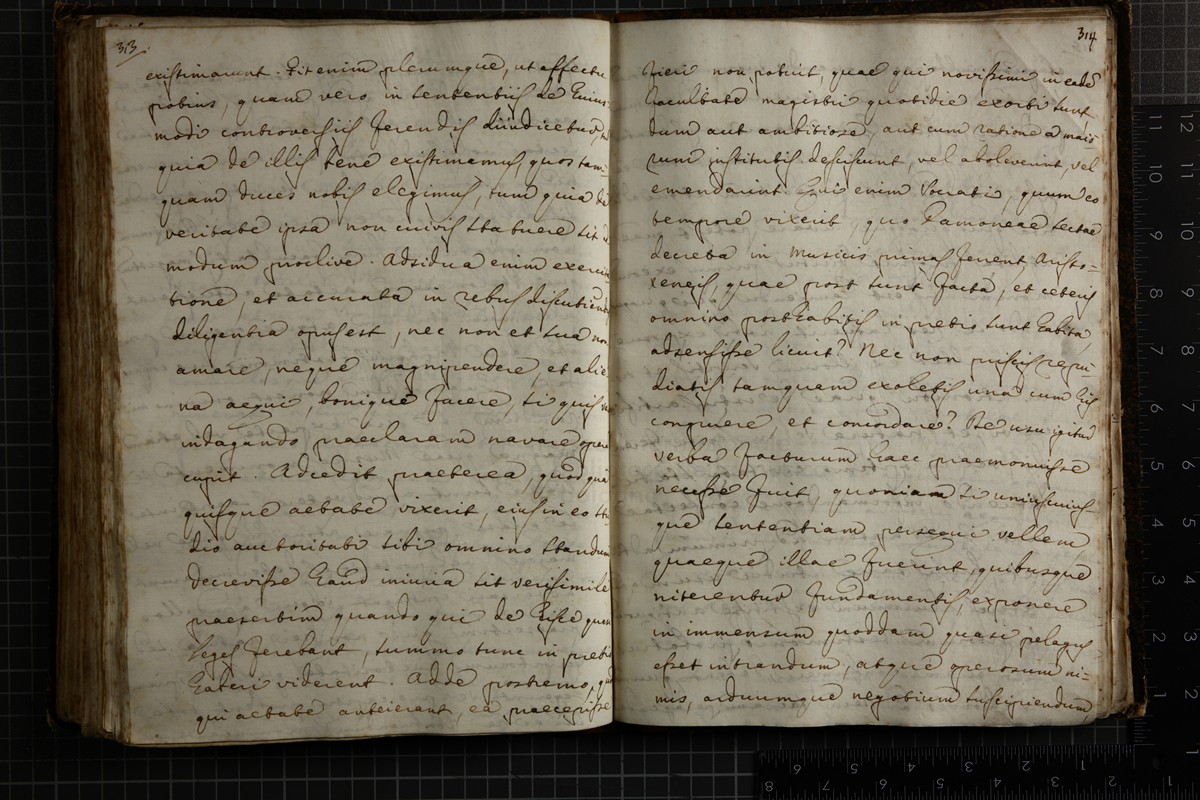 313.
existimarunt. Fit enim plerumque, ut affectu
potius, quam vero in sententiis de huius
modi controversiis ferendis diiudicetur,
quia de illis bene existimamus, quos tam
quam duces nobis elegimus, tum quia de
veritate ipsa non cuivis statuere sit
modum proclive. Adsidua enim exerci
tione, et accurata in rebus discutiendis
diligentia opus est, nec non et sua non
amare, neque magnipendere, et alie
na aequi, bonique facere, si quis
indagando praeclaram navare operam
cupit. Adcedit praeterea, quod qua
quisque aetate vixerit, eius in eo stu
dio auctoritati sibi omnino standum
decrevisse haud iniuria sit verisimile
praesertim quando qui de hisce quon
leges ferebant, summo tunc in pretio
haberi viderent. Adde postremo,
qui aetate anteierant, ea praecepisse
314
fieri non potuit, quae qui novissimi in eadem
facultate magistri quotidie exorti sunt
dum aut ambitiose, aut cum ratione a maio
rum institutis desciscunt, vel aboleverunt, vel
emendarunt. Qui enim Socrati, quum eo
tempore vixerit, quo Damoneae sectae
decreta in Musicis primas ferent Aristo=
xeneis, quae post sunt facta, et ceteris
omnino posthabitis in pretio sunt habita,
adsensisse licuit? Nec non priscis repu
diatis tamquam exoletis una cum his
congruere, et concordare? De usu igitur
verba facturum haec praemonuisse
necesse fuit, quoniam si uniuscuius
que sententiam persequi vellem,
quaeque illae fuerint, quibusque
niterentur fundamentis, exponere
in immensum quoddam quasi pelagus
esset intrandum, atque operosum ni=
mis, arduumque negotium suscipiendum